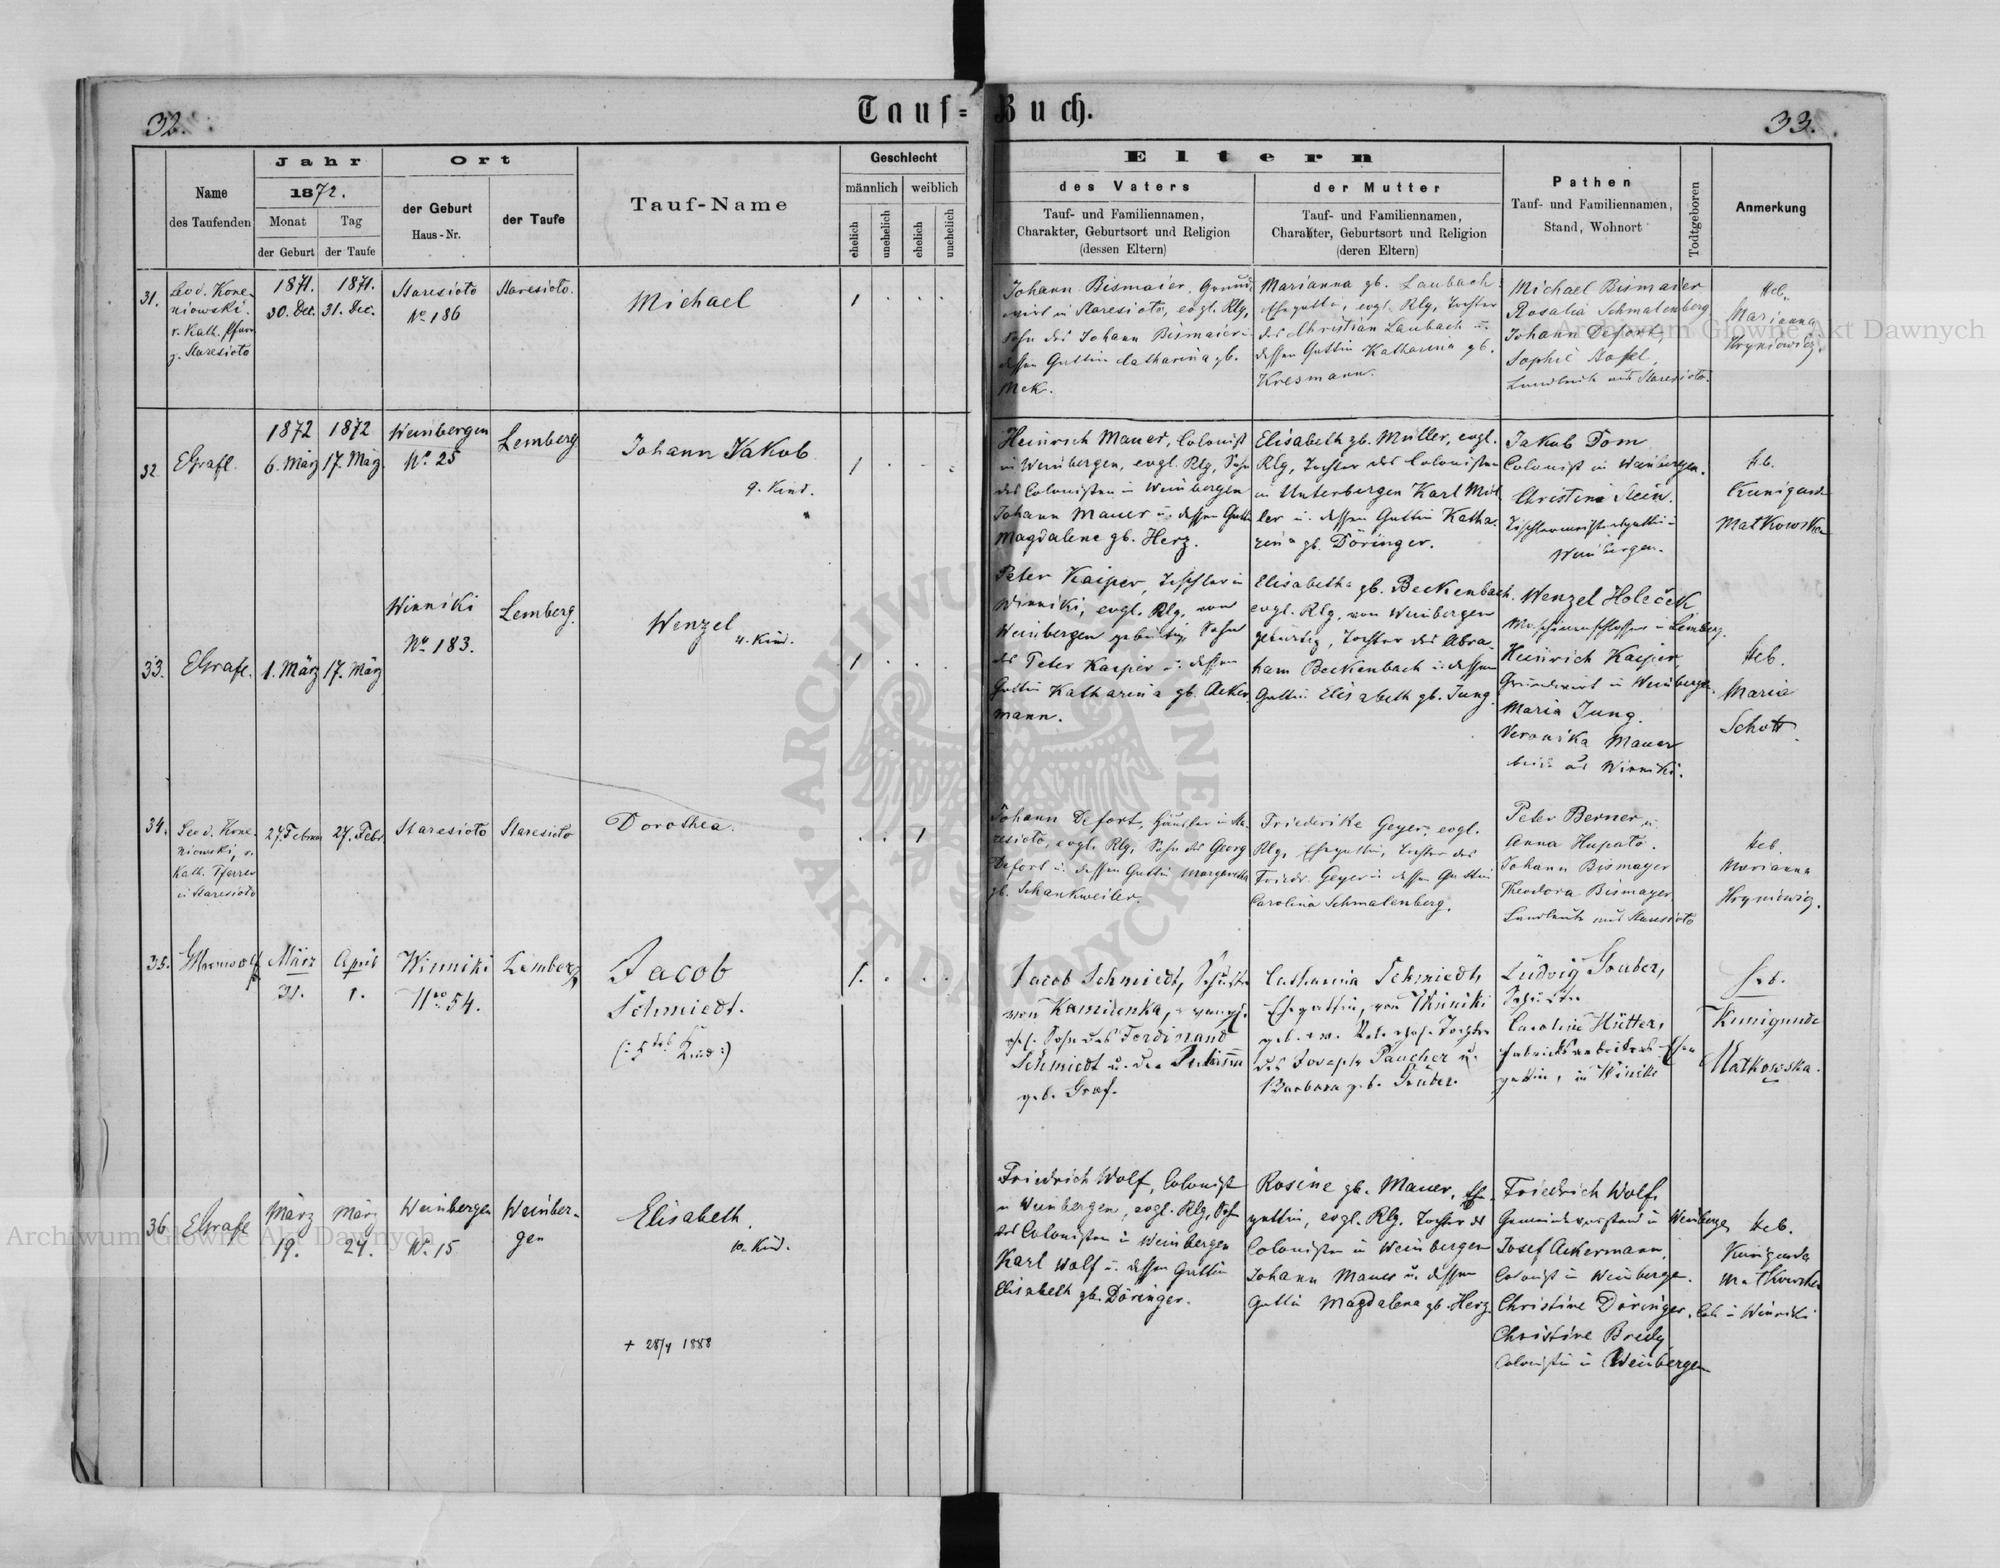 32.
Tauf-Buch.
33.
Name
des Taufenden
Jahr
1872.
Monat
der Geburt
Tag
der Taufe
Ort
der Geburt
Haus-Nr.
der Taufe
Tauf-Name
Geschlecht
männlich
weiblich
ehelich
unehelich
ehelich
unehelich
Eltern
des Vaters
Tauf- und Familiennamen,
Charakter, Geburtsort und Religion
(dessen Eltern)
der Mutter
Tauf- und Familiennamen,
Charakter, Geburtsort und Religion
(deren Eltern)
Pathen
Tauf- und Familiennamen,
Stand, Wohnort
Todtgeboren
Anmerkung
31.
Leo v. Kone-
niowski.
r. Kath. Pfarr
z. Staresioto
1871.
30. Dec.
1871.
31. Dec.
Staresioto
No. 186
Staresioto.
Michael
1
Johann Bismaier, Grund-
wirt in Staresioto, evgl. Rlg,
Sohn des Johann Bismaier u.
dessen Gattin Catharina gb.
Mek.
Marianna gb. Laubach
Ehegattin, evgl. Rlg, Tochter
des Christian Laubach u.
dessen Gattin Katharina gb.
Kresmann.
Michael Bismaier
Rosalia Schmalenberg
Johann Defort,
Sophie
Landleute aus Staresioto.
Heb.
Marianna
Hryniewicz.
32
EGrafl.
1872
6. März
1872
17. März
Weinbergen
No. 25
Lemberg
Johann Jakob
9. Kind.
1
Heinrich Mauer, Colonist
in Weinbergen, evgl. Rlg, Sohn
des Colonisten in Weinbergen
Johann Mauer u. dessen Gattin
Magdalene gb. Herz.
Elisabeth gb. Müller, evgl.
Rlg, Tochter des Colonisten
in Unterbergen Karl Mül
ler u. dessen Gattin Katha-
rina gb. Döringer.
Jakob Dom
Colonist in Weinbergen.
Christine Stein.
Tischlermeistersgattin in
Weinbergen.
Hb.
Kunigunde
Matkowska
33.
EGrafe.
1. März
17. März
Winniki
No. 183.
Lemberg.
Wenzel
4. Kind.
1
Peter Kaiper, Tischler in
Winniki, evgl. Rlg, von
Weinbergen gebürtig, Sohn
des Peter Kasper u. dessen
Gattin Katharina gb. Acker
mann.
Elisabetha gb. Beckenbach.
evgl. Rlg, von Weinbergen
gebürtig, Tochter des Abra-
ham Beckenbach u. dessen
Gattin Elisabeth gb. Jung
Wenzel Holeček
Maschinenschlosser in Lemberg.
Heinrich Kasper,
Grundwirt in Weinbergen.
Maria Jung.
Veronika Mauer
beide aus Winniki.
Heb.
Maria
Schott.
34.
Leo v. Kone-
niowski, r.
Kath. Pfarrer
in Staresioto
27. Februar
27. Febr.
Staresioto
Staresioto
Dorothea.
1
Johann Defort, Häusler in Sta-
resioto, evgl. Rlg, Sohn des Georg
Defort u. dessen Gattin Margaretha
gb. Schankweiler.
Friederike Geyer, evgl.
Rlg, Ehegattin, Tochter des
Friedr. Geyer u. dessen Gattin
Carolina Schmalenberg.
Peter Berner u.
Anna Hupato.
Johann Bismayer
Theodora Bismayer,
Landleute aus Staresioto
Heb.
Marianna
Hryniewicz.
35.
März
31.
April
1.
Winniki
Nro. 54.
Lemberg
Jacob
Schmiedt.
(: 5tes Kind :)
1.
Jacob Schmiedt, Schuster
von Kamienka, evang.
Sohn des Ferdinand
Schmiedt u. der
geb. Graf.
Catharina Schmiedt,
Ehegattin, von Winniki
geb. Tochter
des Joseph Paucher u.
Barbara geb. Gruber.
Ludvig Gruber,
Schuster
Caroline Hütter,
Fabriksarbeiters Ehe
gattin, in Winiki
Heb.
Kunigunde
Matkowska.
36.
EGrafe
März
19.
März
24.
Weinbergen
No. 15
Weinber-
gen
Elisabeth.
10. Kind.
+ 28/4 1888
Friedrich Wolf, Colonist
in Weinbergen, evgl. Rlg, Sohn
des Colonisten in Weinbergen
Karl Wolf u. dessen Gattin
Elisabeth gb. Döringer.
Rosine gb. Mauer, Ehe-
gattin, evgl. Rlg, Tochter des
Colonisten in Weinbergen
Johann Mauer u. dessen
Gattin Magdalena gb. Herz.
Friedrich Wolf,
Gemeindevorstand in Weinbergen
Josef Ackermann,
Colonist in Weinbergen.
Christine Döringer,
Christine Bredy
Colonistin in Weinbergen
Heb.
Kunigunda
Matkowska
in Winniki
Archiwum Główne Akt Dawnych
Archiwum Główne Akt Dawnych